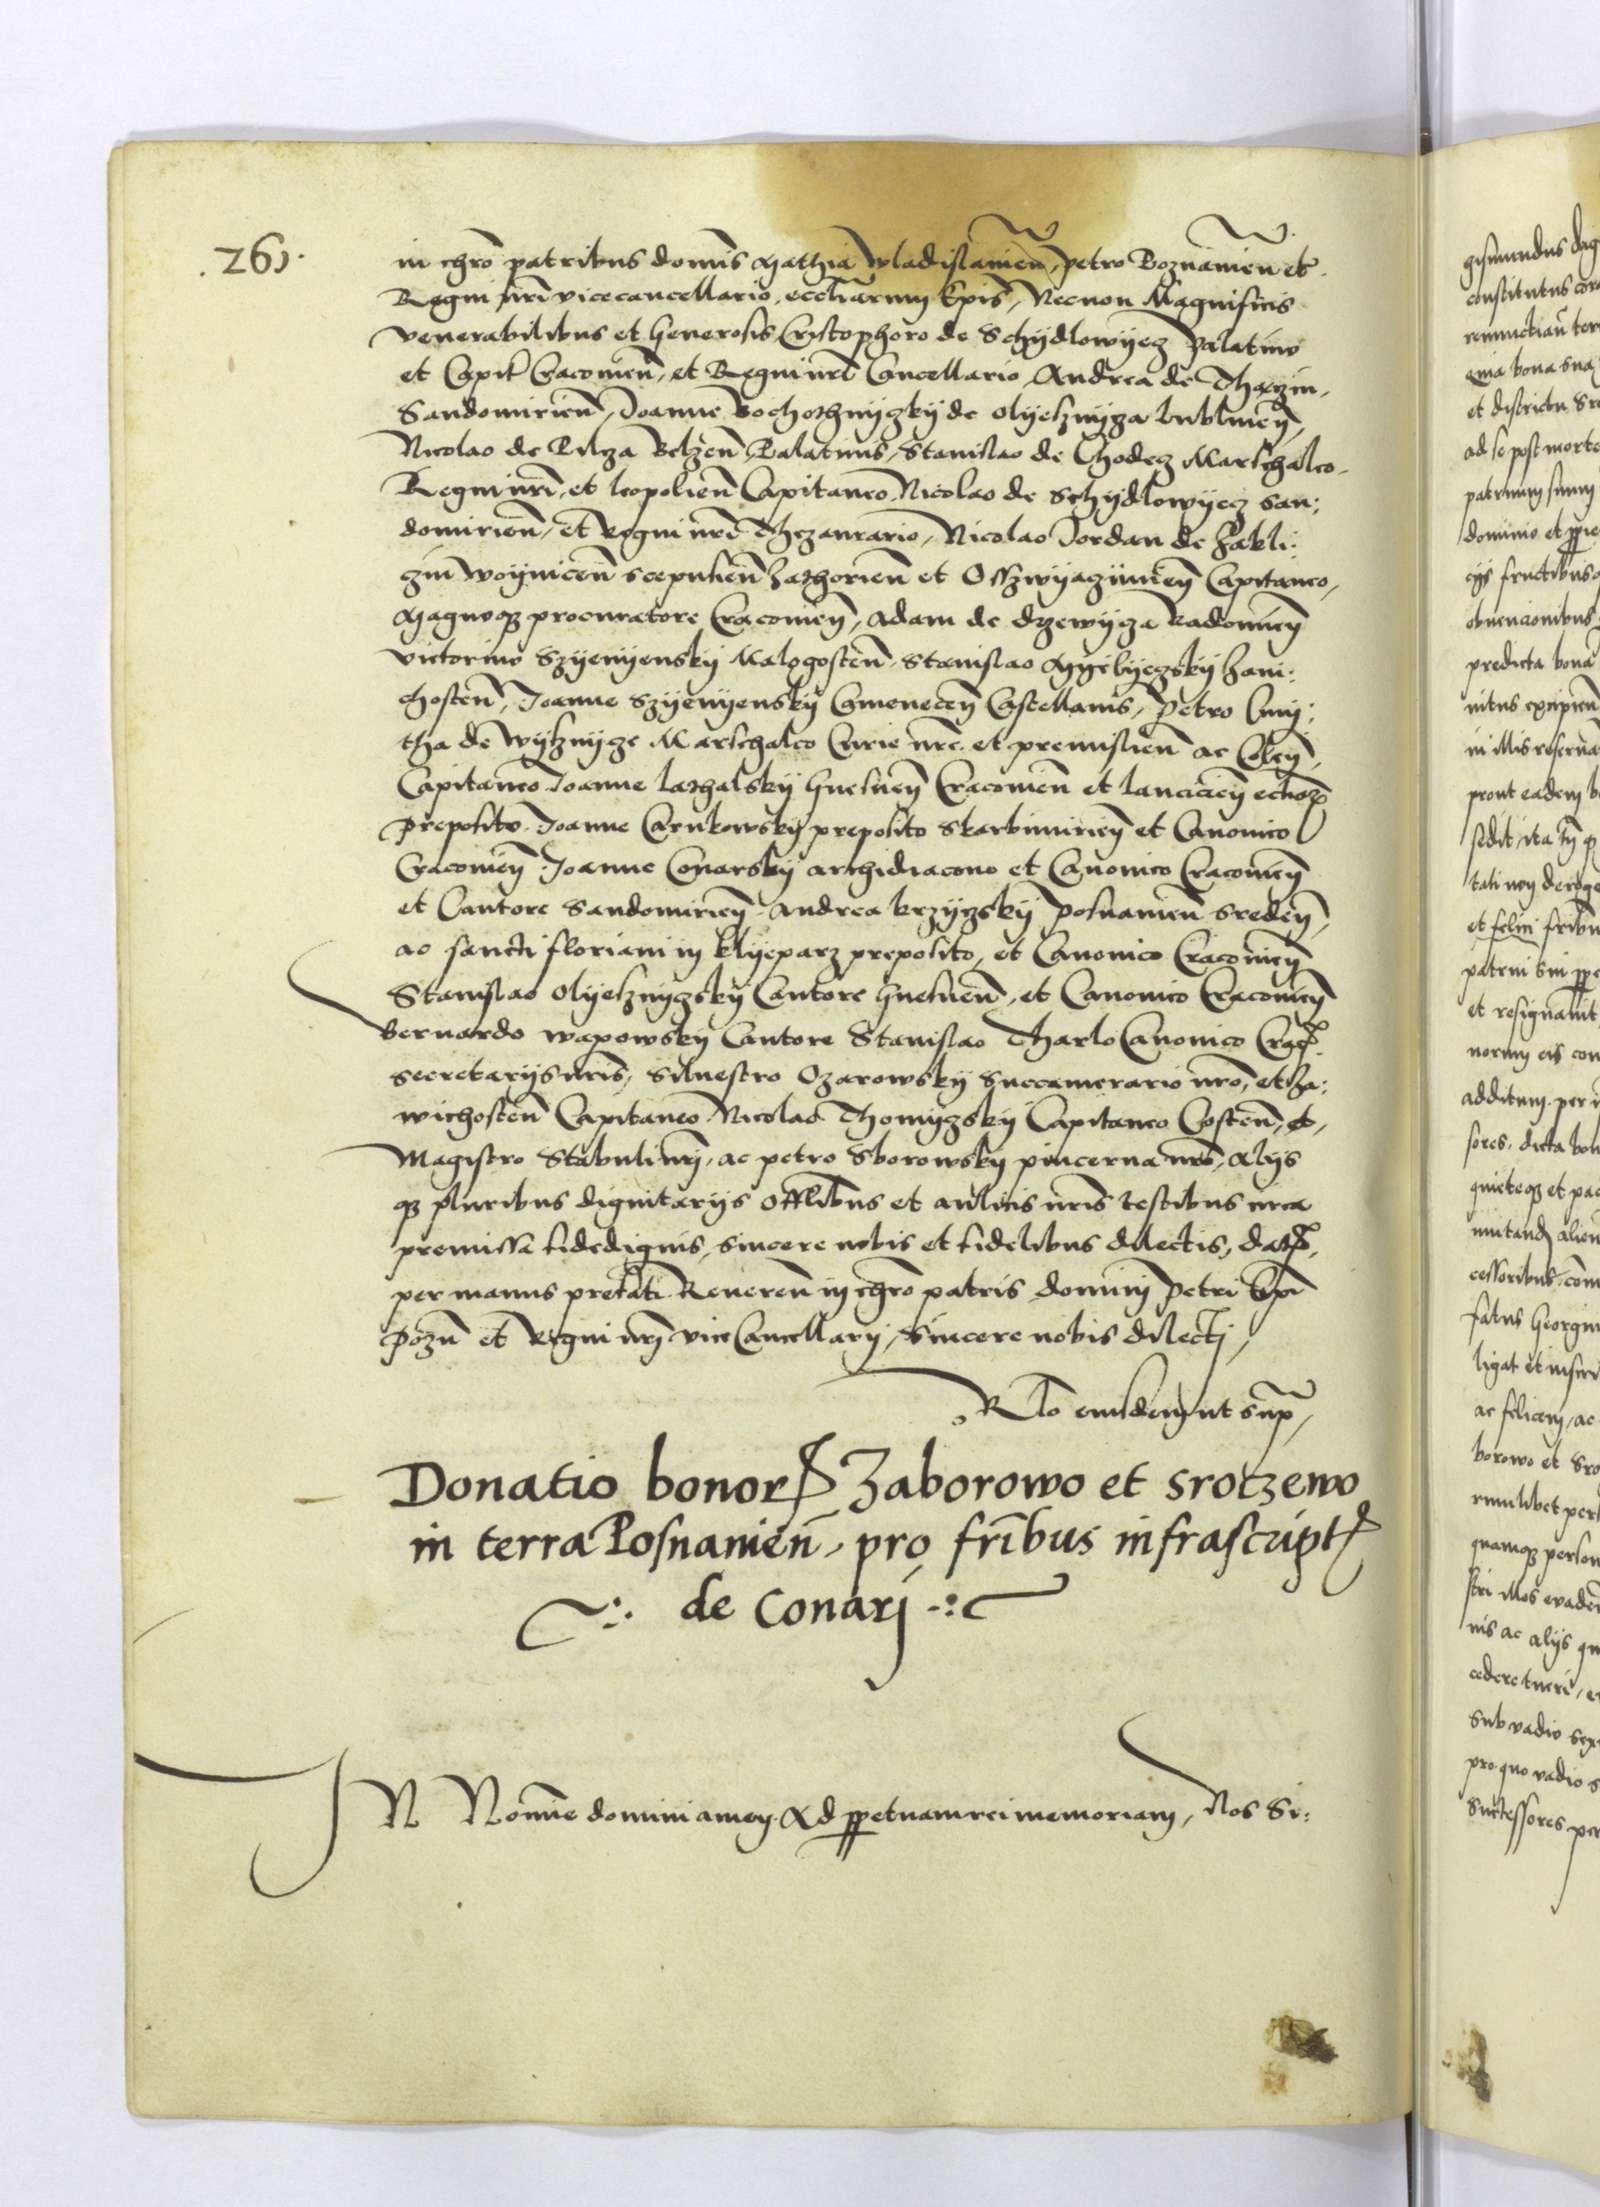 .261.
in chr̄o patribus domīs Mathia Wladislauieñ, Petro Poznanieñ et
Regni nr̄i vicecancellario, eccliarum Epīs, Necnon Magnificis
venerabilibus et Generosis Cristophoro de Schydlowyecz Palatino
et Capit Cracouieñ, et Regni nr̄i Cancellario, Andrea de Thaczin,
Sandomirieñ, Joanne Bochothnyczky de Olyesznycza Lublineñ,
Nicolao de Pilcza Belzeñ Palatinis, Stanislao de Chodecz Marschalco
Regni nr̄i, et leopolieñ Capitaneo, Nicolao de Schydlowyecz San:
domirieñ, et Regni nr̄i Thezaurario, Nicolao Jordan de Zakli:
czin Woyniceñ scepusieñ Zathorieñ et Osszwyaczimeñ Capitaneo,
Magnoqꝫ procuratore Cracouieñ, Adam de Drzewycza Radomieñ
Victorino Szyenyensky Malogosteñ, Stanislao Mgebyczsky Zaui:
chosteñ, Joanne Szyenyensky Cameneceñ Castellanis, Petro Cmy:
tha de Wysznycze Marschalco Curie nr̄e et premislieñ ac Coleñ,
Capitaneo Joanne Lathalsky Gnesneñ Cracouieñ et Lancicieñ ecclioꝝ
Preposito, Joanne Carnkowsky preposito Skarbimirieñ et Canonico
Cracouieñ, Joanne Conarsky archidiacono et Canonico Cracouieñ
et Cantore Sandomirieñ, Andrea krzyczsky Posnanieñ Sredeñ,
ac sancti floriani in Klyeparz preposito, et Canonico Cracouieñ
Stanislao Olyesznyczsky Cantore Gnesneñ, et Canonico Cracouieñ
Bernardo Wapowsky Cantore Stanislao Tharlo Canonico Crac
secretarijs nr̄is, Siluestro Ozarowsky Succamerario nr̄o, et Za:
wichosteñ Capitaneo Nicolao Thomyczsky Capitaneo Costeñ, et,
Magistro Stabuli nr̄i, ac petro Sborowsky pincerna nr̄o, Alijs
qꝫ pluribus dignitarijs offlibus et aulicis nr̄is testibus circa
premissa fidedignis, sincere nobis et fidelibus dilectis, datꝫ,
per manus prefati Reuereñ in chr̄o patris domini Petri Epī
Pozñ et Regni nr̄i vice Cancellarij, Sincere nobis dilecti,
Rl̄o eiusdem ut supꝝ,
Donatio bonorꝝ Zaborowo et Srotzewo
in terra Posnanieñ, pro fr̄ibus infrascriptꝫ
de Conarj
IN Nomīe domini amen. Ad ꝑpetuam rei memoriam, Nos Si:
gismundus
constitutus cor
et districtu Sr
ad se post morte
patruum suum
cijs fructibus
obuencionibus
predicta bona
in illis reserua
prout eadem
sedit ita
et resignauit
additum per
sores, dicta bon
fatus Georgiu
ligat et inscri
ac felicem, ac
borowo et Sro
nis ac alijs qu
sub vadio
pro quo vadio s
Successores per